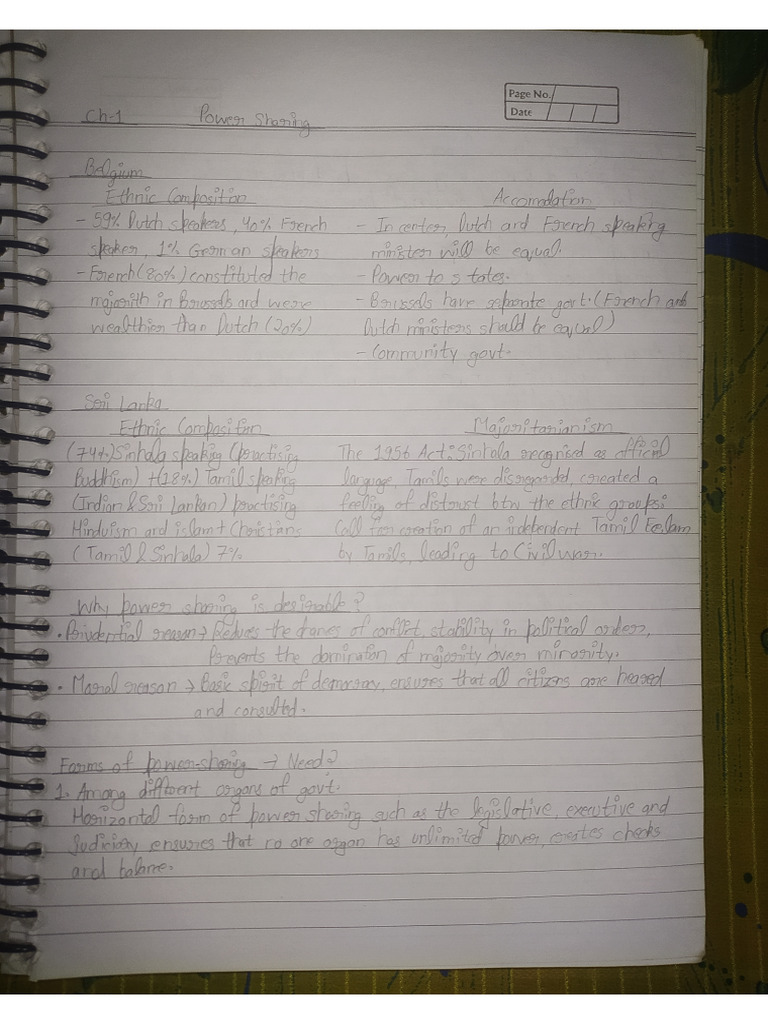 Page No.
Date
Ch-1 Power Sharing
Belgium
Ethnic Composition
- 59% Dutch speakers, 40% French
speaker, 1% German speakers
- French (80%) constituted the
majority in Brussels and were
wealthier than Dutch (20%)
Accomodation
- In center, Dutch and French speaking
minister will be equal.
- Power to states.
- Brussels have separate govt. (French and
Dutch ministers should be equal)
- Community govt.
Sri Lanka
Ethnic Composition
(74%) Sinhala speaking (practising
Buddhism) + (18%) Tamil speaking
(Indian & Sri Lankan) practising
Hinduism and islam + Christians
(Tamil & Sinhala) 7%
Majoritarianism
The 1956 Act: Sinhala recognised as official
language, Tamils were disregarded, created a
feeling of distrust btw the ethnic groups:
call for creation of an independent Tamil Eelam
by Tamils, leading to Civil war.
Why power sharing is desirable?
• Prudential reason → Reduces the chances of conflict, stability in political orders,
Prevents the domination of majority over minority.
• Moral reason → Basic spirit of democracy, ensures that all citizens are heared
and consulted.
Forms of power-sharing → Need?
1. Among different organs of govt.
Horizontal form of power sharing such as the legislative, executive and
Judiciary ensures that no one organ has unlimited power, creates checks
and balance.